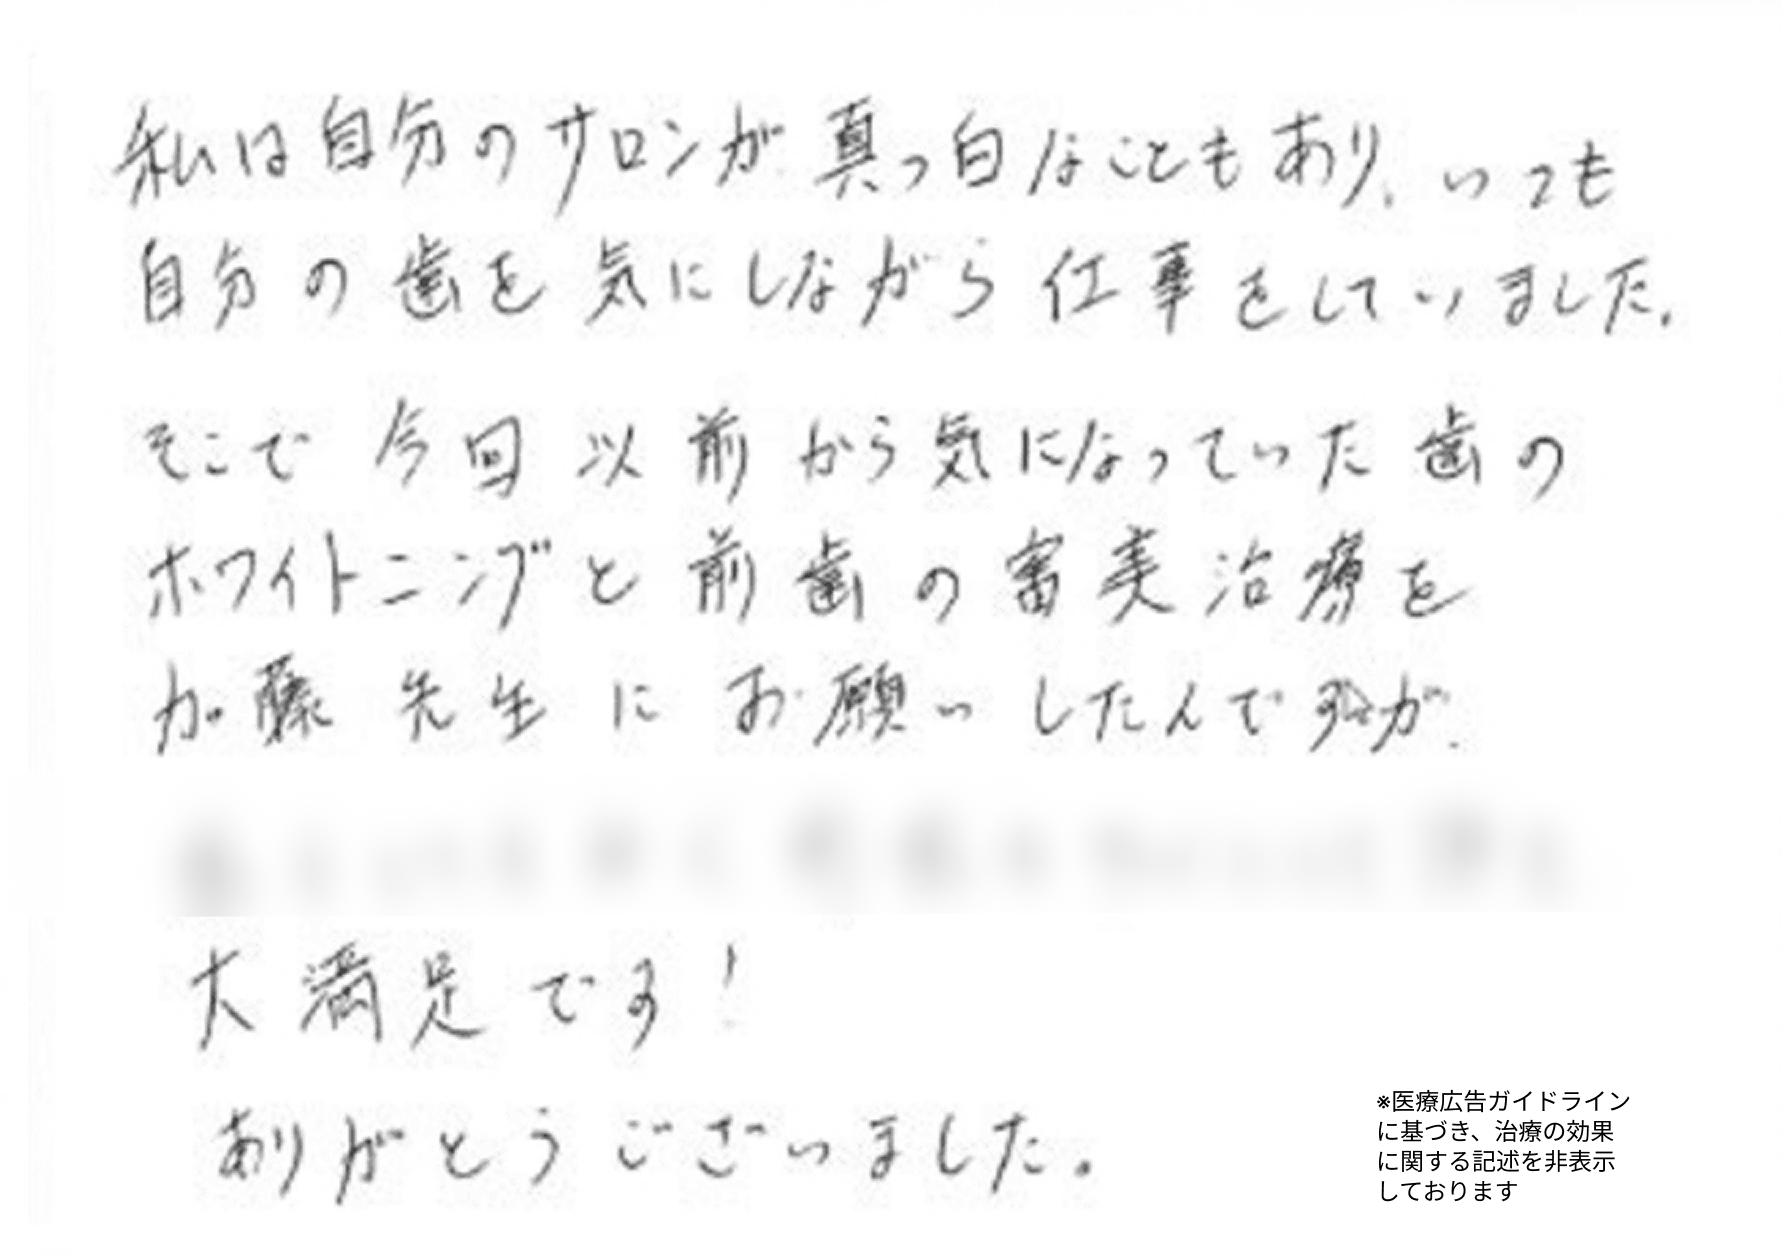 私は自分のサロンが真っ白なこともあり、いつも
自分の歯を気にしながら仕事をしていました。
そこで今回以前から気になっていた歯の
ホワイトニングと前歯の審美治療を
加藤先生にお願いしたんですが、
大満足です!
ありがとうございました。
※医療広告ガイドライン
に基づき、治療の効果
に関する記述を非表示
しております